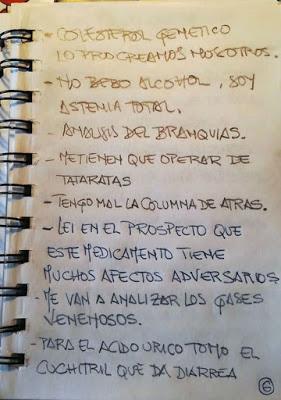 - COLESTEROL GENETICO
LO PROCREAMOS NOSOTROS.
- NO BEBO ALCOHOL, SOY
ASTEMIA TOTAL.
- ANALISIS DEL BRANQUIAS.
- METIENEN QUE OPERAR DE
TATARATAS
- TENGO MAL LA COLUMNA DE ATRAS.
- LEI EN EL PROSPECTO QUE
ESTE MEDICAMENTO TIENE
MUCHOS AFECTOS ADVERSARIOS
- ME VAN A ANALIZAR LOS GASES
VENENOSOS.
- PARA EL ACIDO URICO TOMO EL
CUCHITRIL QUE DA DIARREA
6